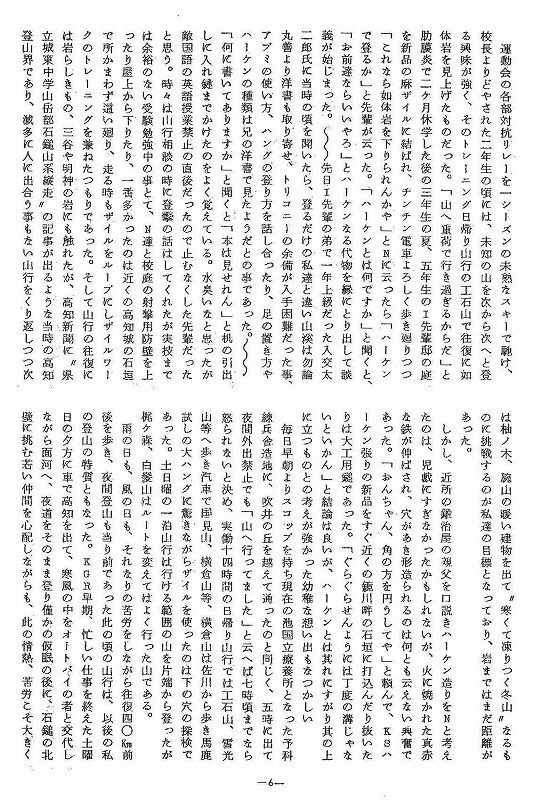 運動会の各部対抗リレーを一シーズンの未熟なスキーで馳け、
校長よりどやされた二年生の頃には、未知の山を次から次へと登
る興味が強く、そのトレーニング日帰り山行の工石山で往復に如
体岩を見上げたものだった。「山へ重荷で行き過ぎるからだ」と
肋膜炎で二ケ月休学した後の三年生の夏、五年生のI先輩邸の庭
を新品の麻ザイルに結ばれ、チンチン電車よろしく歩き廻りつつ
「これなら如体岩を下りられんかや」とNに云ったら「ハーケン
で登るか」と先輩が云った。「ハーケンとは何ですか」と聞くと、
「お前達ならいいやろ」とハーケンなる代物を縁にとり出して談
義が始じまった。〜〜先日I先輩の弟で一年上級だった入交太
二郎氏に当時の頃を聞いたら、登るだけの私達と違い山渓は勿論
丸善より洋書も取り寄せ、トリコニーの余備が入手困難だった事、
アブミの使い方、ハングの登り方を話し合ったり、足の置き方や
ハーケンの種類は兄の洋書で見たようだとの事であった。〜〜
「何に書いてありますか」と聞くと「本は見せれん」と机の引出
しに入れ鍵までかけたのをよく覚えている。水臭いなと思ったが
敵国語の英語授業禁止の直後だったので止むなくした先輩だった
と思う。時々は山行相談の時に登攀の話はしてくれたが実技まで
は余裕のない受験勉強中の事とて、N達と校庭の射撃用防壁を上
ったり屋上から下りたり、一番多かったのは近くの高知城の石垣
で所かまわず這い廻り、走る時もザイルをループにしザイルワー
クのトレーニングを兼ねたつもりであった。そして山行の往復に
は岩らしきもの、三谷や明神の岩にも触れたが、高知新聞に〝県
立城東中学山岳部石鎚山系縦走〟の記事が出るような当時の高知
登山界であり、滅多に人に出合う事もない山行をくり返しつつ次
は柚ノ木、腕山の暖い建物を出て〝寒くて凍りつく冬山〟なるも
のに挑戦するのが私達の目標となっており、岩まではまだ距離が
あった。
しかし、近所の鍛冶屋の親父を口説きハーケン造りをNと考え
たのは、児戯にすぎなかったかもしれないが、火に焼かれた真赤
な鉄が伸ばされ、穴があき形造られるのは何とも云えない興奮で
あった。「おんちゃん、角の方を円うしてや」と頼んで、KSハ
ーケン張りの新品をすぐ近くの鏡川畔の石垣に打込んだり抜いた
りは大工用鎚であった。「ぐらぐらせんようには丁度の溝じゃな
いといかん」と結論は良いが、ハーケンとは其れにすがり其の上
に立つものとの考えが強かった幼稚な想い出もなつかしい
毎日早朝よりスコップを持ち現在の池国立療養所となった予科
練兵舎造地に、吹井の丘を越えて通ったのと同じく、五時に出て
夜間外出禁止でも「山へ行ってました」と云へば七時頃までなら
怒られないと決め、実働十四時間の日帰り山行では工石山、雪光
山等へ歩き汽車で国見山、横倉山等。横倉山は佐川から歩き馬鹿
試しの大ハングに驚きながらザイルを使ったのは下の穴の探検で
あった。土日曜の一泊山行は行ける範囲の山を片端から登ったが
梶ケ森、白髪山はルートを変えてはよく行った山である。
雨の日も、風の日も、それなりの苦労をしながら往復四〇Km前
後を歩き、夜間登山も当り前であった此の頃の山行は、以後の私
の登山の特質ともなった。KGR早期、忙しい仕事を終えた土曜
日の夕方に車で高知を出て、寒風の中をオートバイの者と交代し
ながら面河へ、夜道をそのまま登り僅かの仮眠の後に、石鎚の北
壁に挑む若い仲間を心配しながらも、此の情熱、苦労こそ大きく
—6—